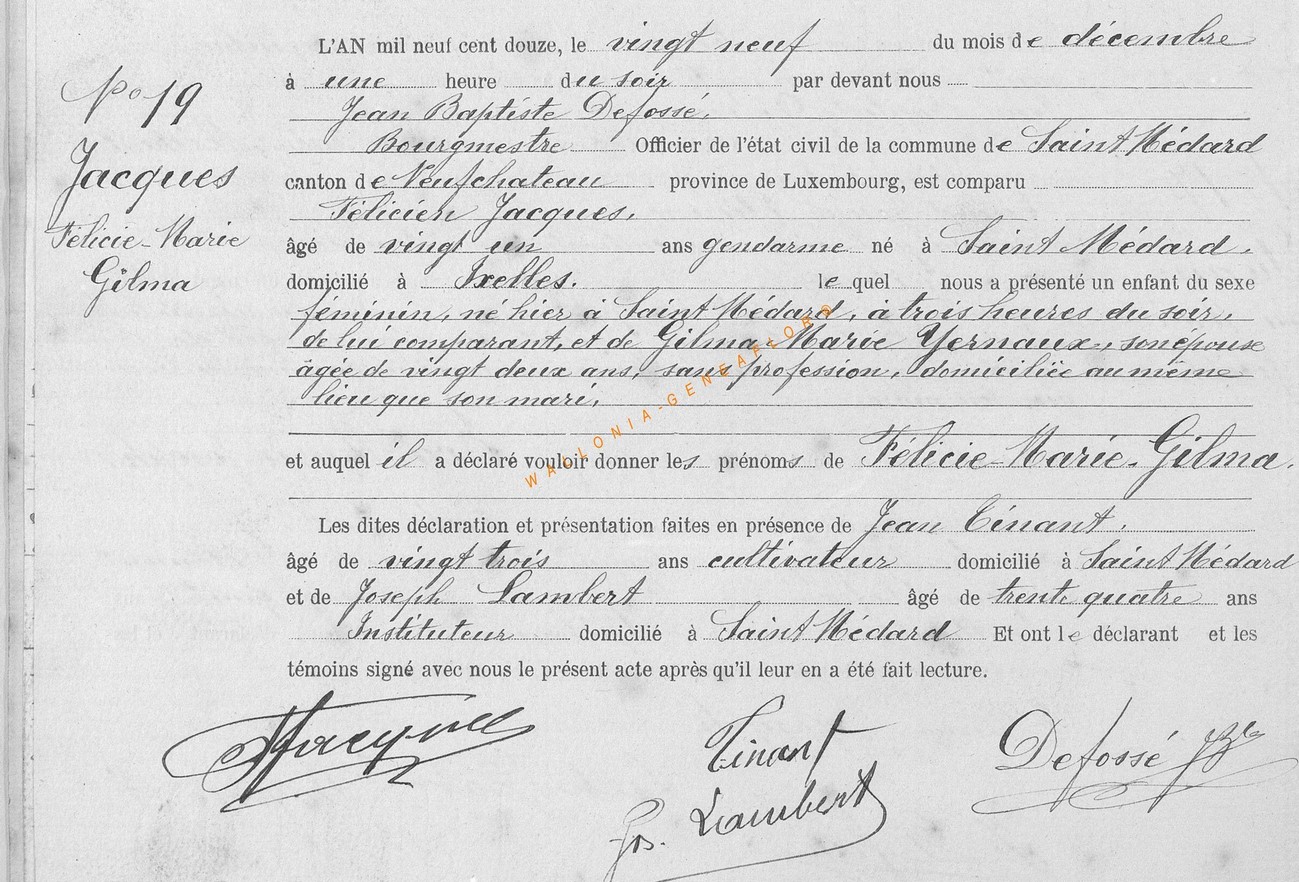 No 19
Jacques
Félicie-Marie
Gilma
L'AN mil neuf cent douze, le vingt neuf du mois de décembre
à une heure du soir par devant nous
Jean Baptiste Defossé.
Bourgmestre Officier de l'état civil de la commune de Saint Médard
canton de Neufchateau province de Luxembourg, est comparu
Félicien Jacques.
âgé de vingt un ans gendarme né à Saint Médard.
domicilié à Ixelles. le quel nous a présenté un enfant du sexe
féminin, né hier à Saint Médard, à trois heures du soir,
de lui comparant, et de Gilma-Marie Yernaux, son épouse
âgée de vingt deux ans, sans profession, domiciliée au même
lieu que son mari.
et auquel il a déclaré vouloir donner les prénoms de Félicie-Marie-Gilma.
Les dites déclaration et présentation faites en présence de Jean Tinant.
âgé de vingt trois ans cultivateur domicilié à Saint Médard
et de Joseph Lambert âgé de trente quatre ans
Instituteur domicilié à Saint Médard Et ont le déclarant et les
témoins signé avec nous le présent acte après qu'il leur en a été fait lecture.
FJacques
Tinant
Defossé JB
Jos. Lambert
WALLONIA-GENEAFLORD